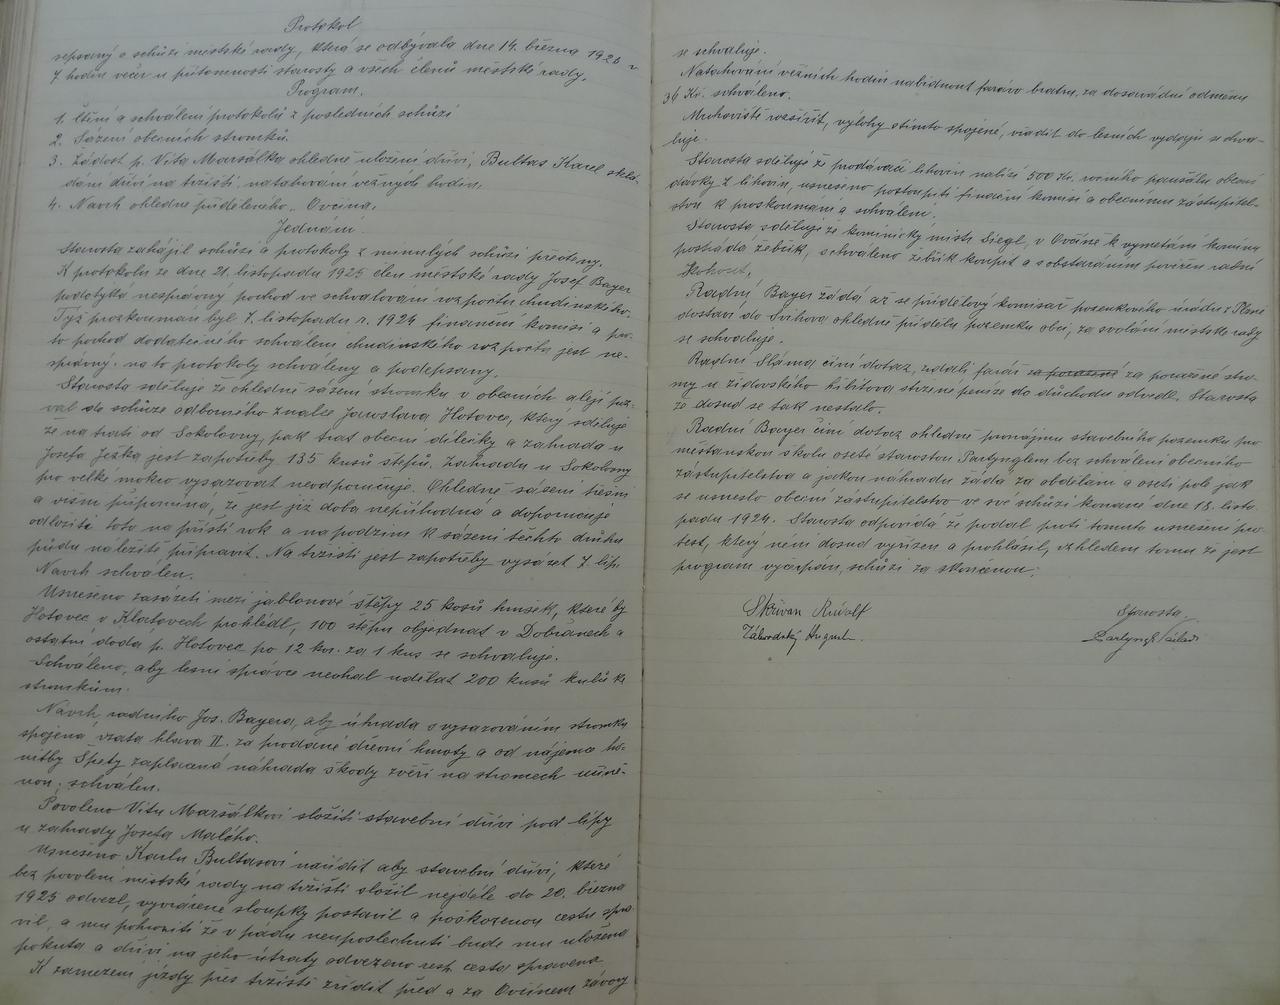 Protokol
sepsaný o schůzi městské rady, která se odbývala dne 14. března 1925 v
7 hodin večer u přítomnosti starosty a všech členů městské rady.
Program.
1. Čtení a schválení protokolů z posledních schůzí
2. Sázení obecních stromků.
3. Žádost p. Víta Maršálka ohledně uložení dříví, Bultas Karel sklá-
dání dříví na tržišti, natahování věžných hodin,
4. Návrh ohledně přiděleného. Ovčína.
Jednání
Starosta zahájil schůzi a protokoly z minulých schůzí přečteny.
K protokolu ze dne 21. listopadu 1925 člen městské rady Josef Bayer
podotýká nesprávný pochod ve schvalování rozpočtu chudinského.
Týž prozkoumán byl 7. listopadu r. 1924 finanční komisí a pro-
to pochod dodatečného schválení chudinského rozpočtu jest ne-
správný. na to protokoly schváleny a podepsány.
Starosta sděluje že ohledně sázení stromků v obecních alejí poz-
val do schůze odborného znalce Jaroslava Hotovce, který sděluje
že na trati od Sokolovny, pak trať obecní dílečky a zahrada u
Josefa Ježka jest zapotřeby 135 kusů štěpů. Zahrada u Sokolovny
pro velké mokro vysazovat neodporučuje. Ohledně sázení třešní
a višní připomíná, že jest již doba nepříhodná a doporučuje
odložiti toto na příští rok a na podzim k sázení těchto druhů
půdu náležitě připravit. Na tržišti jest zapotřeby vysázet 7 lip.
Návrh schválen.
Usneseno zasázeti mezi jablonové štěpy 25 kosů hrušek, které by
Hotovec v Klatovech prohlédl, 100 štěpů objednat v Dobřanech a
ostatní dodá p. Hotovec po 12 kor. za 1 kus se schvaluje.
Schváleno, aby lesní správce nechal udělat 200 kusů kulů k
stromkům.
Návrh radního Jos. Bayera, aby úhrada s vysazováním stromků
spojená vzata hlava II. za prodané dřevní hmoty a od nájemce ho-
nitby Špety zaplacená náhrada škody zvěří na stromech učině-
nou, schválen.
Povoleno Vítu Maršálkovi složiti stavební dříví pod lípy
u zahrady Josefa Malého.
Usneseno Karlu Bultasovi nařídit aby stavební dříví, které
bez povolení městské rady na tržišti složil nejdéle do 20. března
1925 odvezl, vyvrácené sloupky postavil a poškozenou cestu spra-
vil, a mu pohroziti že v pádu neuposlechnutí bude mu uložena
pokuta a dříví na jeho útraty odvezeno resp. cesta spravena
K zamezení jízdy přes tržiště zřídit před a za Ovčínem závory
se schvaluje.
Natahování věžních hodin nabídnout farářo bratru, za dosavádní odměnu
36 Kč. schváleno.
Mrchoviště rozšířit, výlohy stímto spojené, vřadit do lesních vydajů se schva-
luje.
Starosta sděluje že prodávači lihovin nabízí 500 Kč. ročního paušálu obecní
dávky z lihovin, usneseno postoupiti finanční komisi a obecnímu zastupitel-
stvu k prozkoumání a schválení.
Starosta sděluje že kominický mistr Siegl, v Ovčíně k vymetání komína
postrádá žebřík, schváleno žebřík koupit a s obstaráním pověřen radní
Kohout.
Radní Bayer žádá ať se přídělový komisař pozemkového úřadu z Plzně
dostaví do Švihova ohledně přídělu pozemku obci, za svolání městské rady
se schvaluje.
Radní Sláma činí dotaz, zdali farář za poražené za poražené stro-
my u židovského hřbitova stržené peníze do důchodu odvedl. Starosta
že dosud se tak nestalo.
Radní Bayer činí dotaz ohledně pronájmu stavebního pozemku pro
měšťanskou školu oseté starostou Partynglem bez schválení obecního
zástupitelstva a jakou náhradu žádá za obdělání a osetí pole jak
se usneslo obecní zástupitelstvo ve své schůzi konané dne 18. listo
padu 1924. Starosta odpovídá že podal proti tomuto usnešení pro
test, který není dosud vyřízen a prohlásil, vzhledem tomu že jest
program vyčerpán, schůzi za skončenou.
Skřivan Rudolf
Starosta,
Záhrodský August
Partyngl